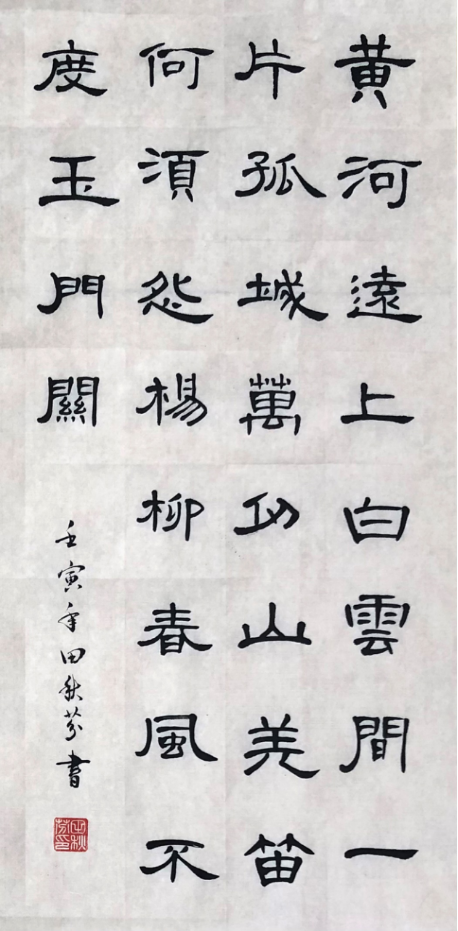 黄河遠上白雲間一
片孤城萬仞山羌笛
何須怨楊柳春風不
度玉門關
壬寅年田秋芬書
田秋芬印